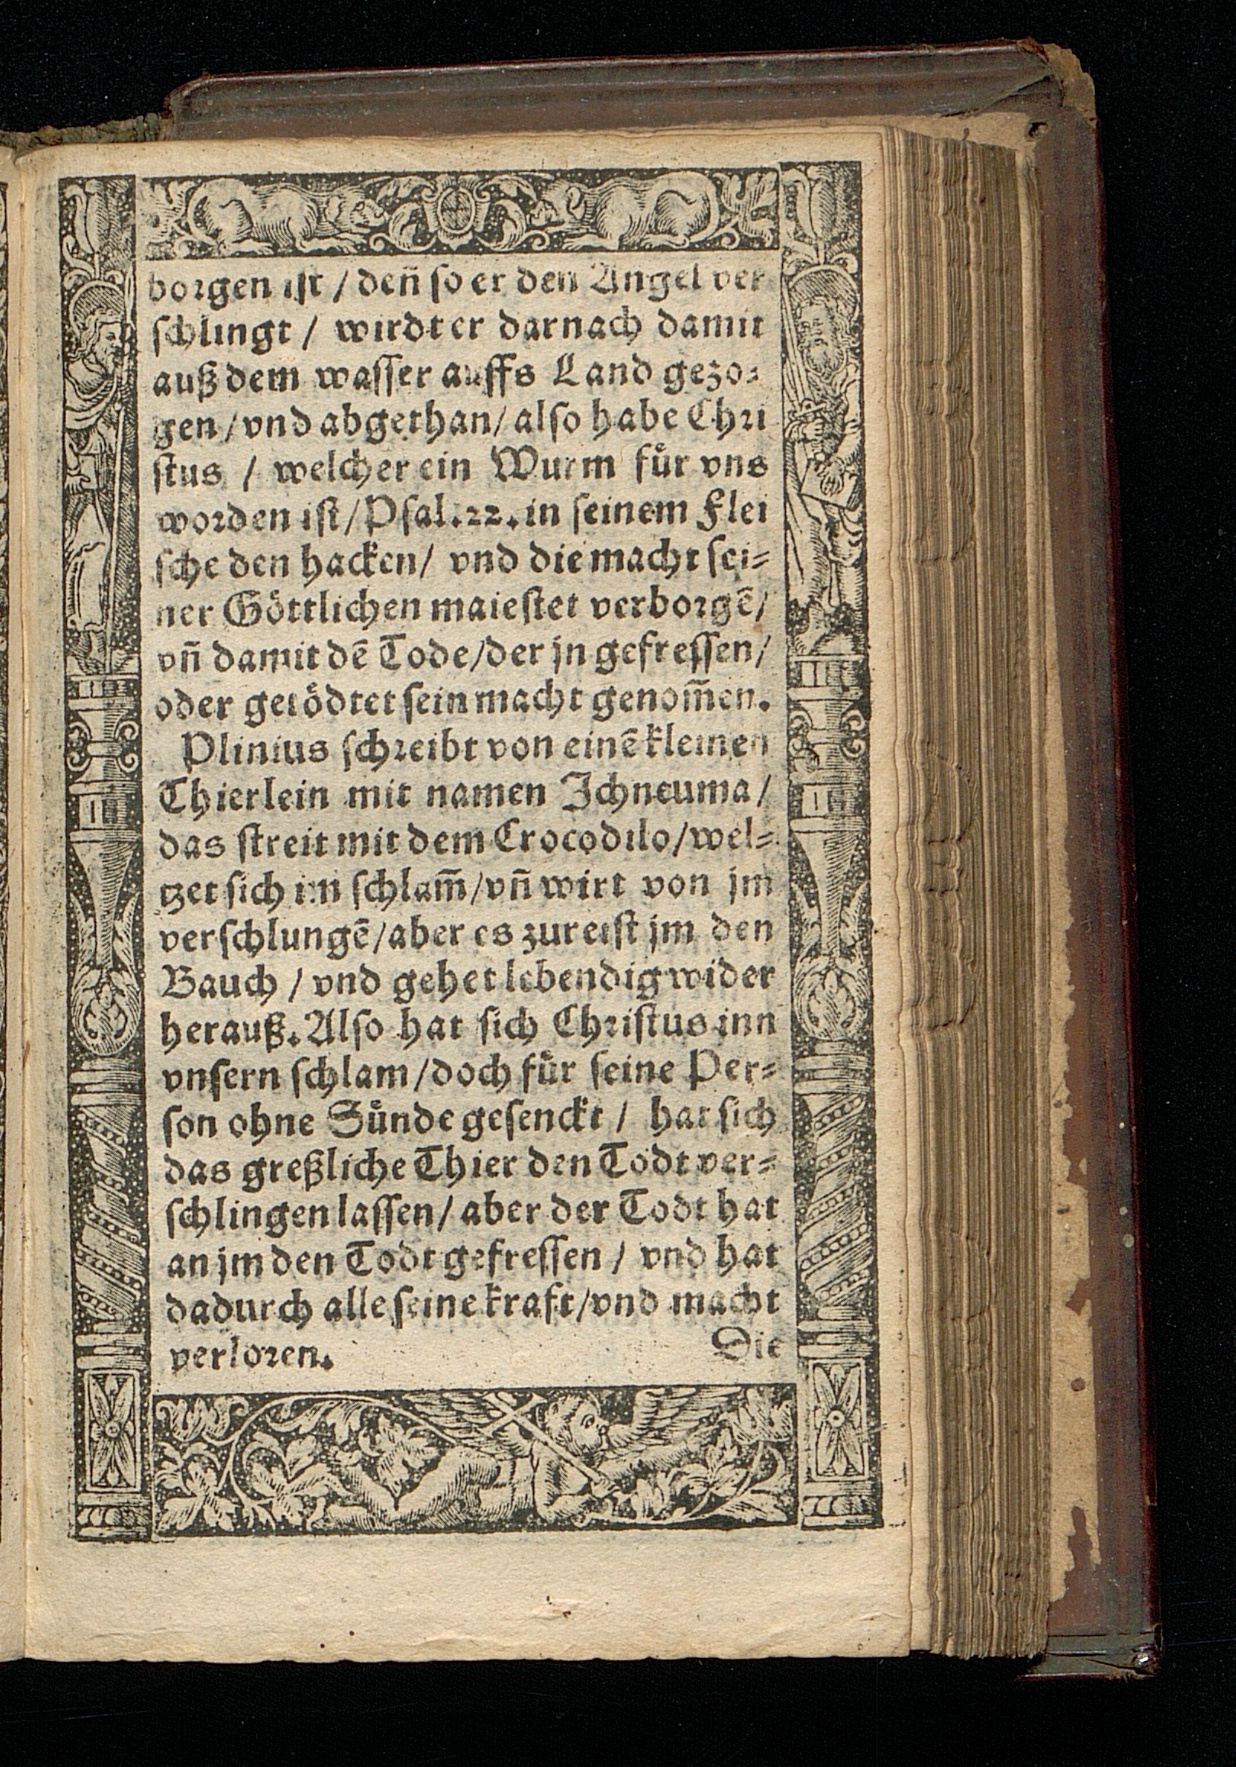 borgen ist / den̄ so er den Angel ver
schlingt / wirdt er darnach damit
auß dem wasser auffs Land gezo-
gen / vnd abgethan / also habe Chri
stus / welcher ein Wurm für vns
worden ist / Psal. 22. in seinem Flei
sche den hacken / vnd die macht sei-
ner Göttlichen maiestet verborgē /
vn̄ damit dē Tode / der jn gefressen /
oder getödtet sein macht genom̄en.
Plinius schreibt von einē kleinen
Thierlein mit namen Ichneuma /
das streit mit dem Crocodilo / wel-
tzet sich im schlam̄ / vn̄ wirt von jm
verschlungē / aber es zureist jm den
Bauch / vnd gehet lebendig wider
herauß. Also hat sich Christus inn
vnsern schlam / doch für seine Per-
son ohne Sünde gesenckt / hat sich
das greßliche Thier den Todt ver-
schlingen lassen / aber der Todt hat
an jm den Todt gefressen / vnd hat
dadurch alle seine kraft / vnd macht
verloren.
Die